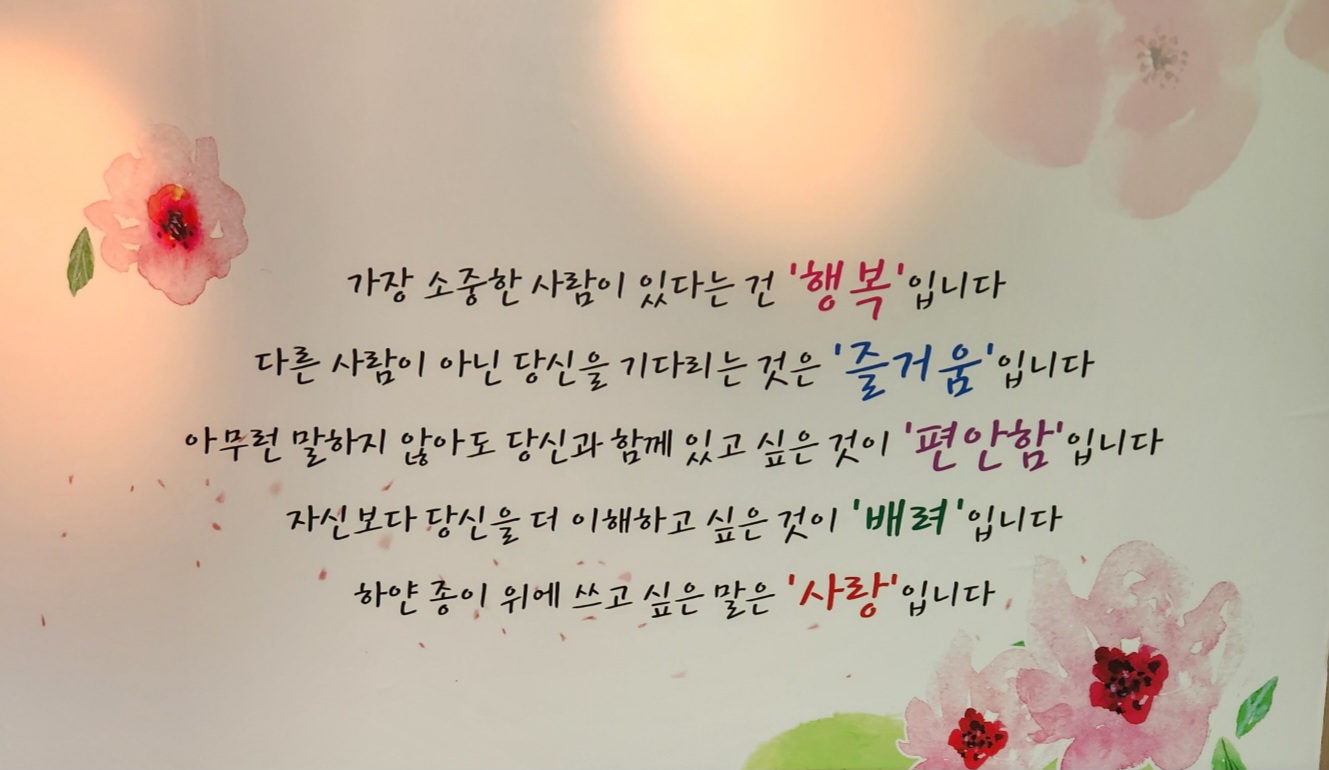 가장 소중한 사람이 있다는 건 '행복'입니다
다른 사람이 아닌 당신을 기다리는 것은 '즐거움'입니다
아무런 말하지 않아도 당신과 함께 있고 싶은 것이 '편안함'입니다
자신보다 당신을 더 이해하고 싶은 것이 '배려'입니다
하얀 종이 위에 쓰고 싶은 말은 '사랑'입니다